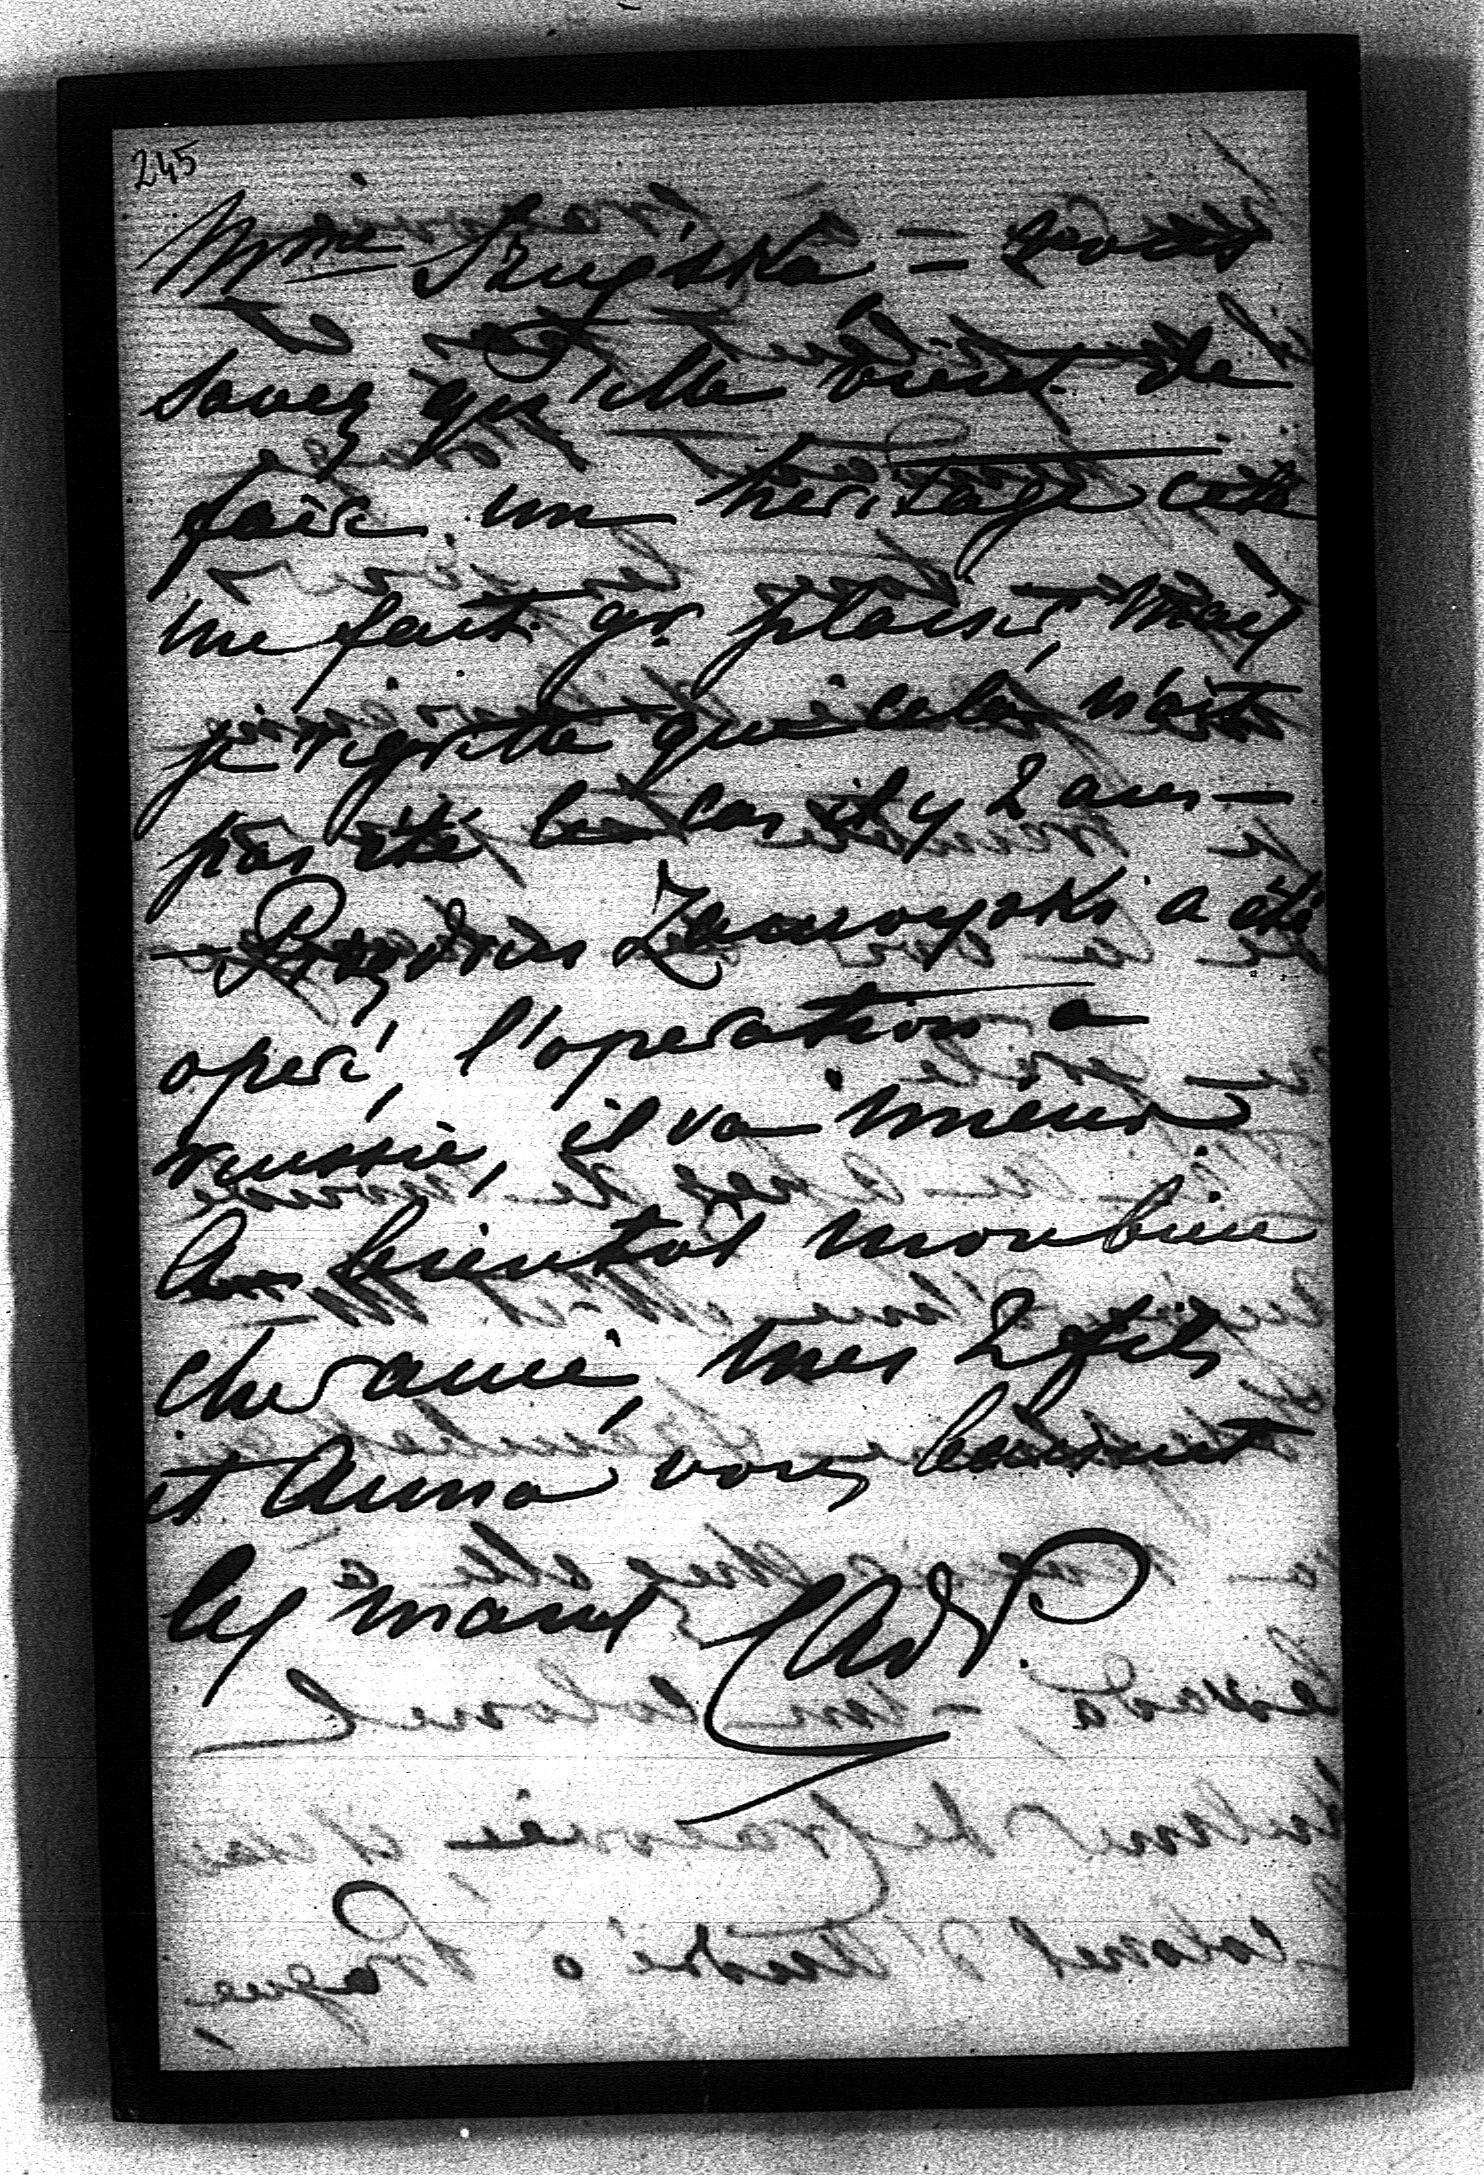 245
Mme – vous
savez qu'elle vient de
faire un heritage cela
me fait gr plaisir, mais
je regrette que cela n'aita
pas été le cas il y 2 ans –
– Zamoyski a été
operé, l'operation a
reussie, il va mieux
A bientot mon bien
cher ami, mes 2 fils
et Anna vous baisent
les mains